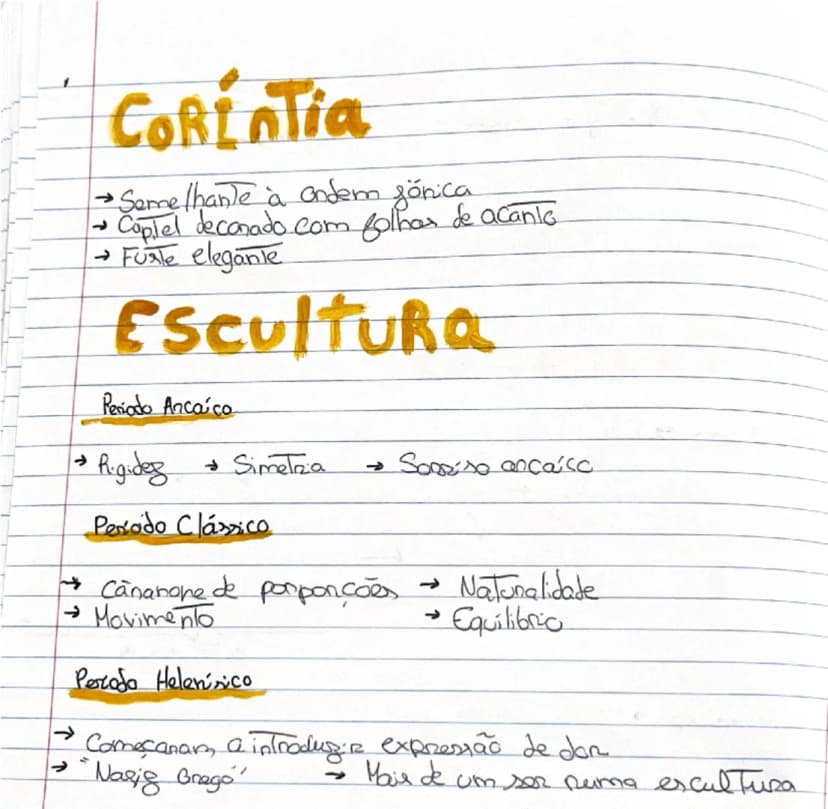 CORÍNTIA
→ Semelhante à ordem jónica
→ Captel decorado com folhas de acanto
→ Fuste elegante
ESCULTURA
Período Arcaico
→ Rigidez → Simetria → Sorriso arcaico
Período Clássico
→ de porporções → Naturalidade
→ Movimento → Equilibrio
Período Helenísico
→ Começaram a introduzir expressão de dor
→ "Nariz Grego" → Mais de um ser numa escultura